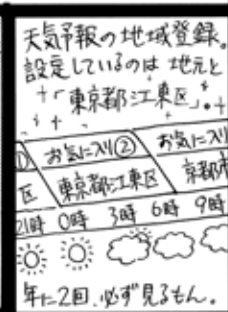 天気予報の地域登録。
設定しているのは 地元と
「東京都江東区」。
① お気に入り② お気に入り
区 東京都江東区 京都市
21時 0時 3時 6時 9時
年に2回、必ず見るもん。